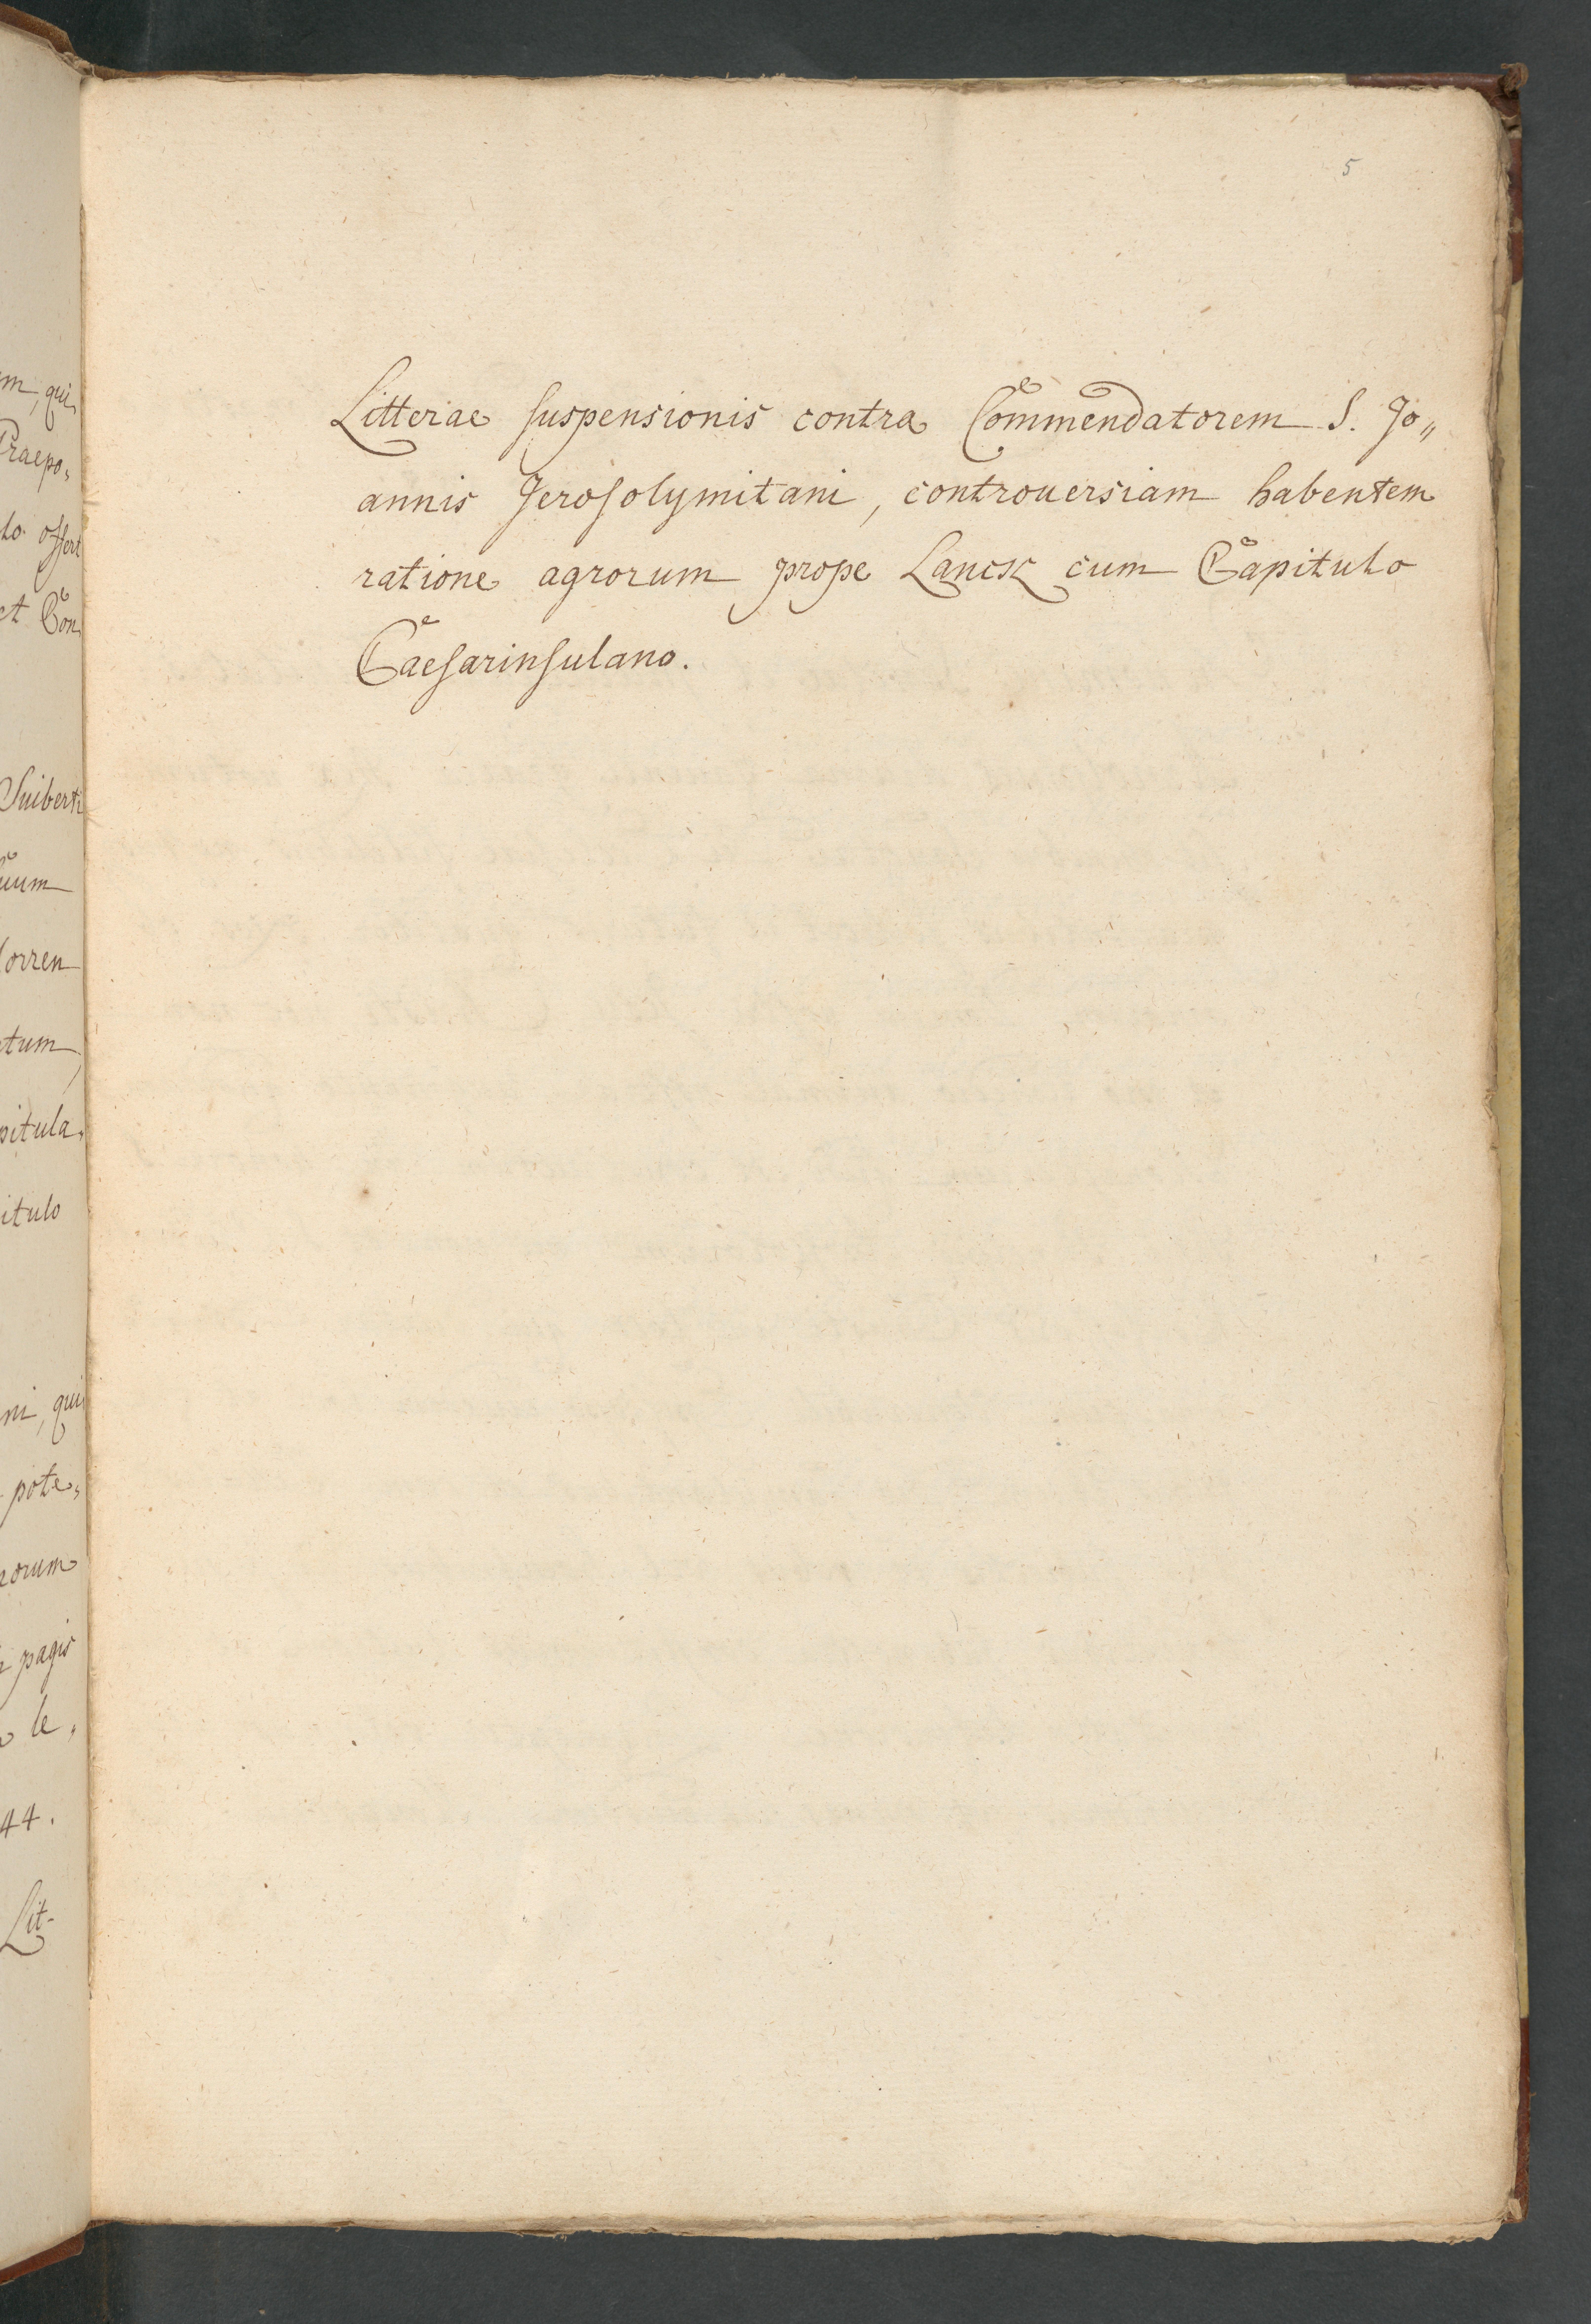 m, qui
Praepo„
offert
et Con
Suiberti
tum
pitula„
itulo
ni, qui
pote„
orum
pagis
le„
44.
Lit-
5
Litterae suspensionis contra Commendatorem S. Jo„
annis Jerosolymitani, controuersiam habentem
ratione agrorum prope Lanck cum Capitulo
Caesarinsulano.